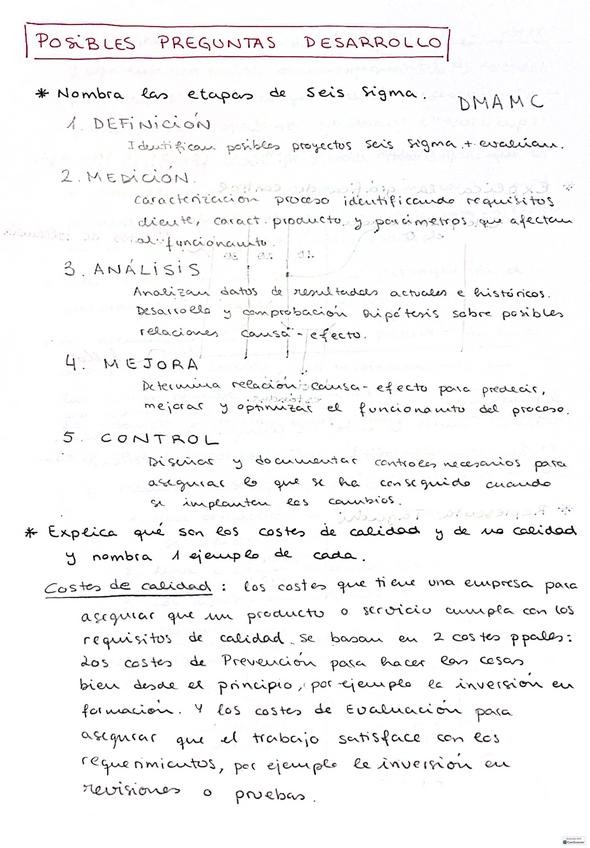 POSIBLES PREGUNTAS DESARROLLO
* Nombra las etapas de Seis Sigma. DMAMC
1. DEFINICIÓN
Identifican posibles proyectos seis sigma + evalúan.
2. MEDICIÓN
Caracterización proceso identificando requisitos
cliente, caract. producto y parámetros que afectan
al funcionamto.
3. ANÁLISIS
Analizan datos de resultados actuales e históricos.
Desarrollo y comprobación hipótesis sobre posibles
relaciones causa-efecto.
4. MEJORA
Determina relación causa-efecto para predecir,
mejorar y optimizar el funcionamto del proceso.
5. CONTROL
Diseñar y documentar controles necesarios para
asegurar lo que se ha conseguido cuando
se implanten los cambios.
* Explica qué son los costes de calidad y de no calidad
y nombra 1 ejemplo de cada.
Costes de calidad: los costes que tiene una empresa para
asegurar que un producto o servicio cumpla con los
requisitos de calidad. Se basan en 2 costes ppales:
Los costes de Prevención para hacer las cosas
bien desde el principio, por ejemplo la inversión en
formación. Y los costes de Evaluación para
asegurar que el trabajo satisface con los
requerimientos, por ejemplo la inversión en
revisiones o pruebas.